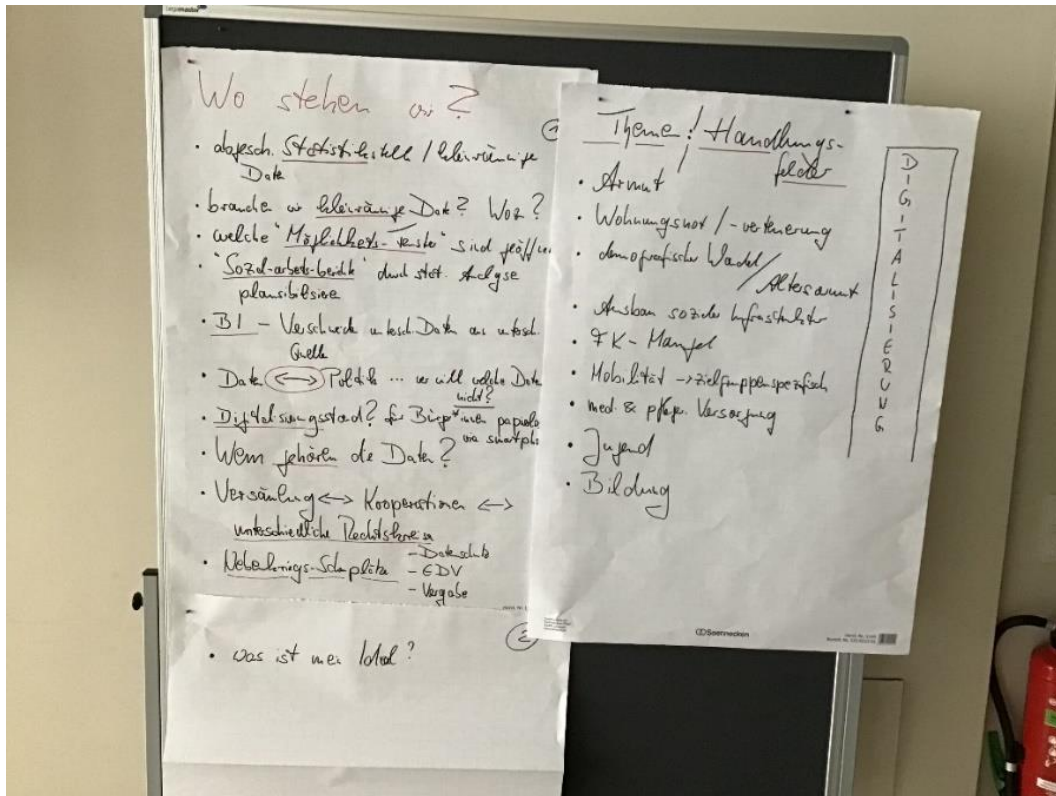 Wo stehen wir?
1
• abgesch. Statistikstelle / kleinräumige
Daten
• brauchen wir kleinräumige Daten? Wozu?
• welche "Möglichkeits-Fenster" sind geöffnet
• "Sozial-arbeits-berichte" durch stat. Analyse
plausibilisieren
• BI – Verschneiden untersch. Daten aus untersch.
Quellen
• Daten <-> Politik ... wer will welche Daten
nicht?
• Digitalisierungsstand? für Bürger*innen papierlos
via smartpho
• Wem gehören die Daten?
• Versäulung <-> Kooperationen <->
unterschiedliche Rechtskreise
• Nebenkriegs-Schauplätze – Datenschutz
– EDV
– Vergabe
2
• was ist mein Ideal?
Themen / Handlungs-
felder
• Armut
• Wohnungsnot / -verteuerung
• demografischer Wandel /
Altersarmut
• Ausbau sozialer Infrastruktur
• FK-Mangel
• Mobilität -> zielgruppenspezifisch
• med. & pfleger. Versorgung
• Jugend
• Bildung
DIGITALISIERUNG
Soennecken